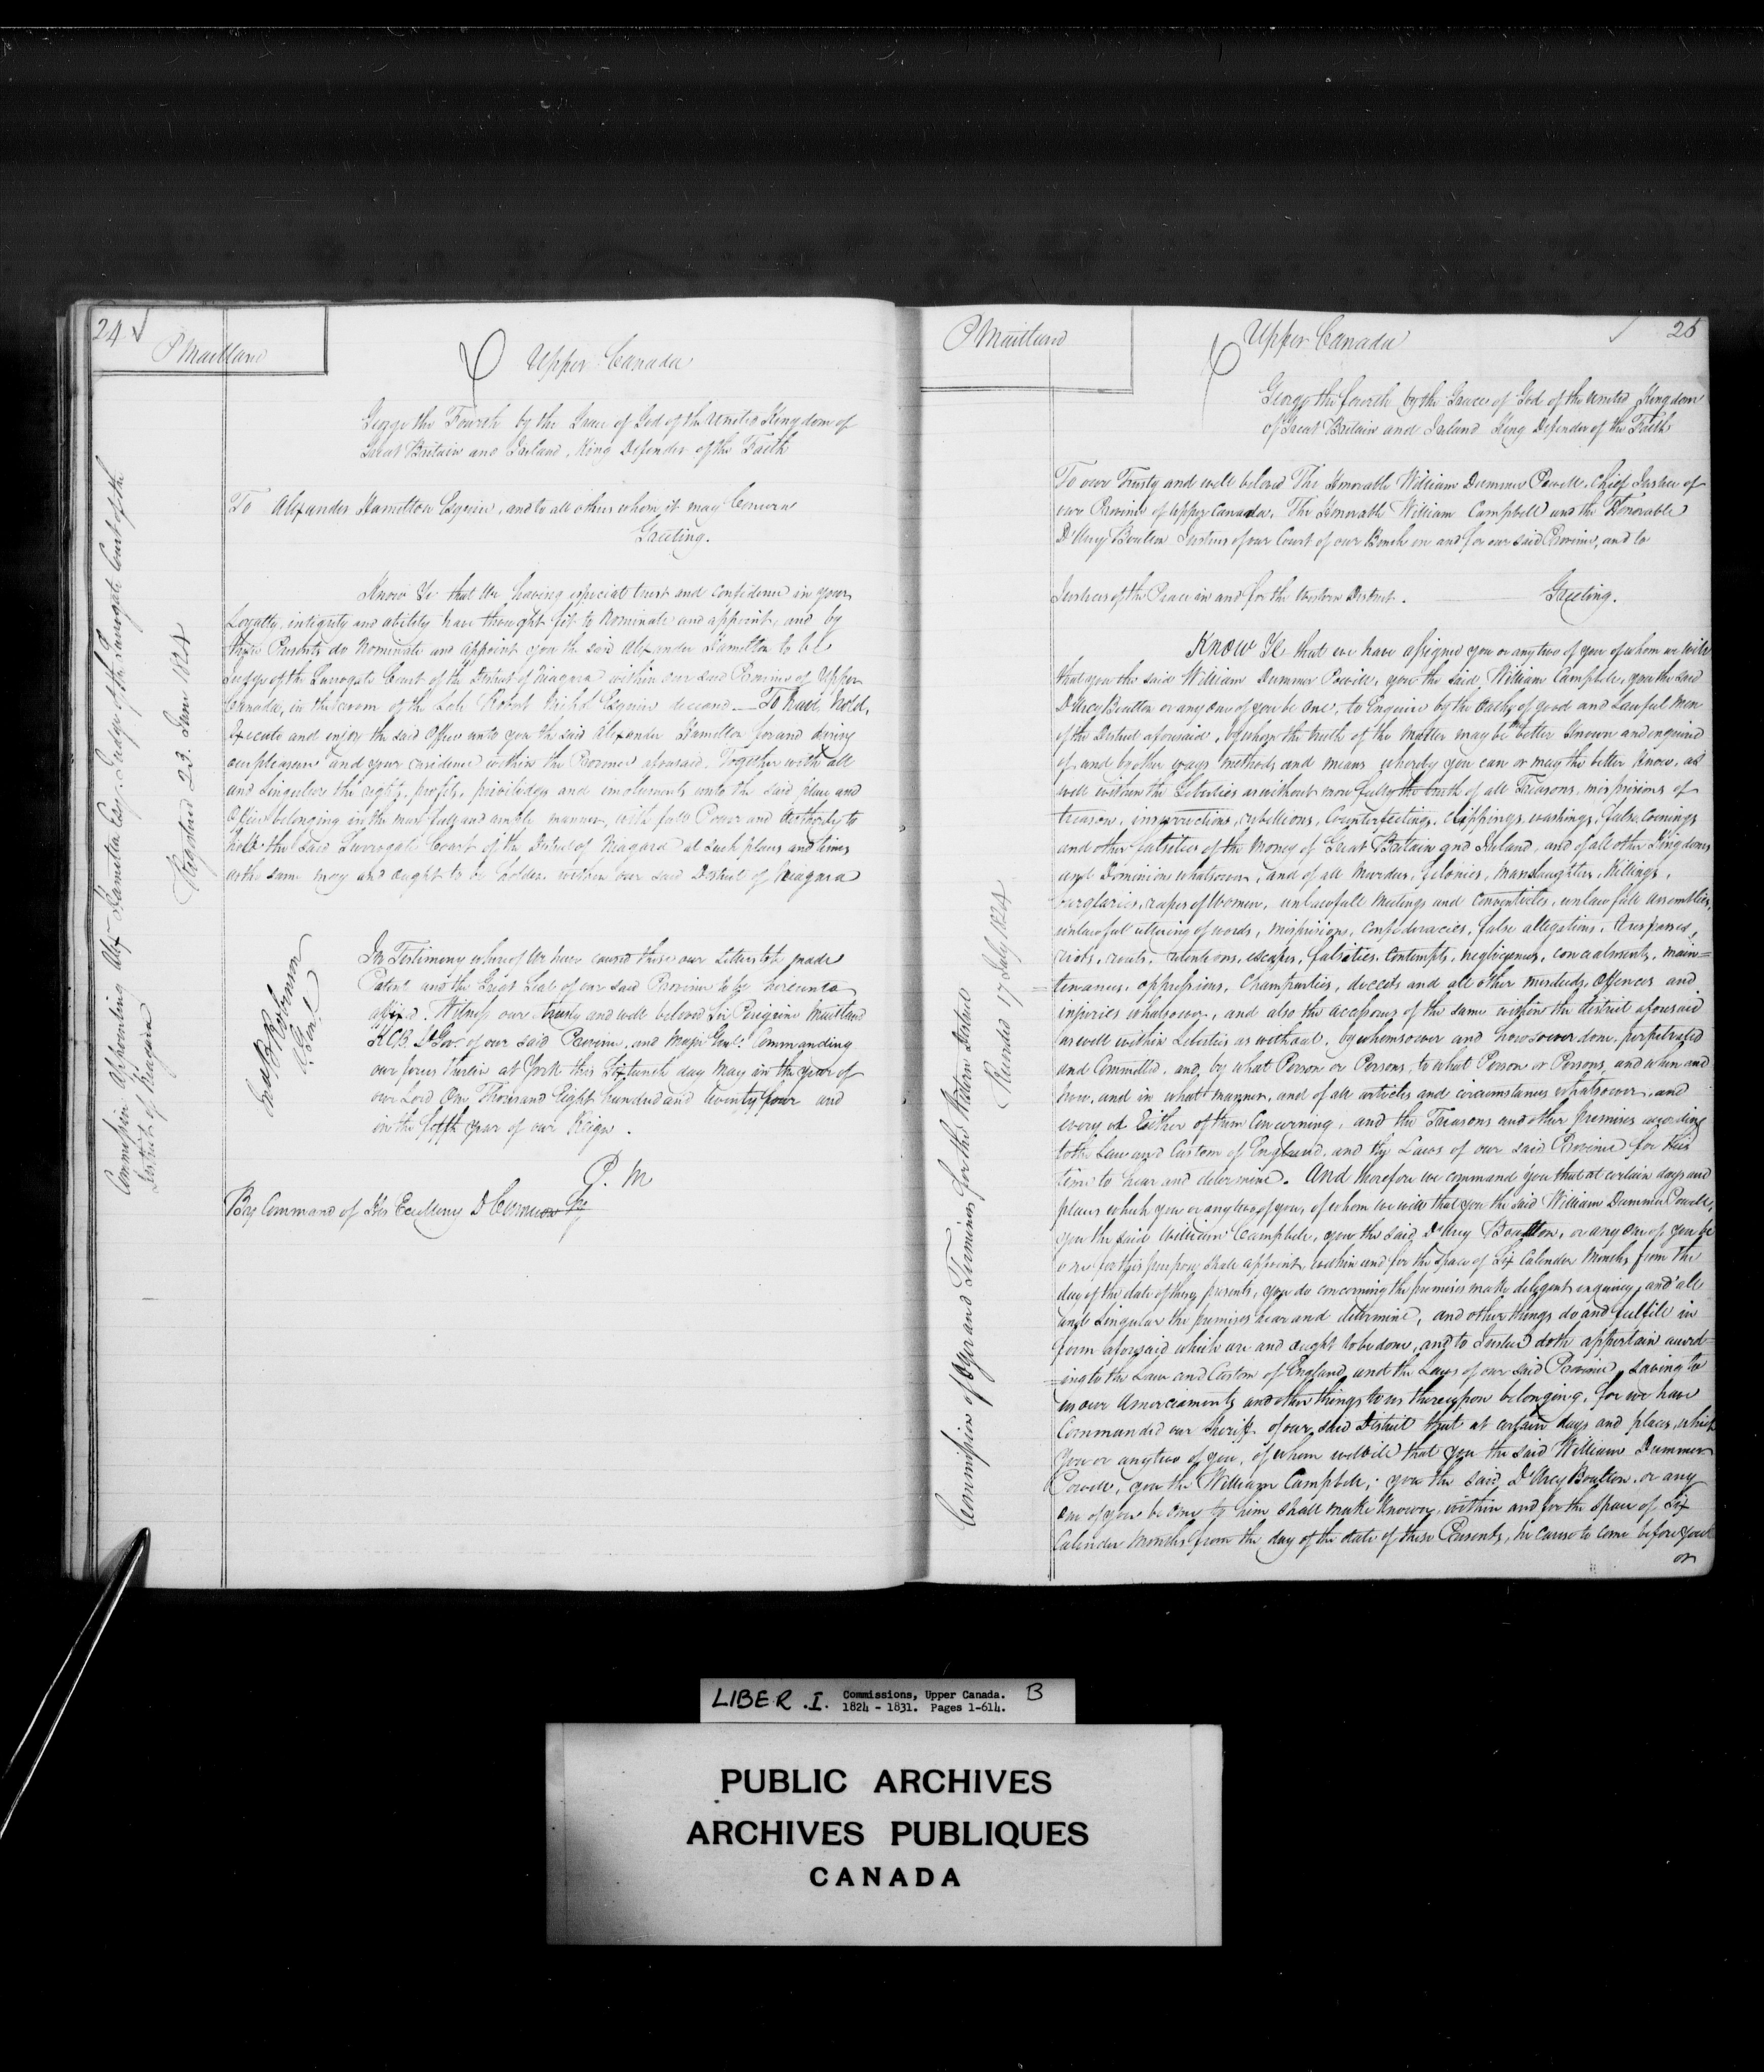 24
P Maitland
Upper Canada
George the Fourth by the Grace of God of the United Kingdom of
Great Britain and Ireland, King Defender of the Faith
To Alexander Hamilton Esquire, and to all others whom it may Concern
Greeting.
Know Ye that We having especial trust and Confidence in your
Loyalty, integrity and ability have thought fit to Nominate and appoint, and by
these Presents do Nominate and appoint you the said Alexander Hamilton to be
Judge of the Surrogate Court of the District of Niagara within our said Province of Upper
Canada, in the room of the Late Robert Esquire deceased — To Have, Hold,
Execute and enjoy the said Office unto you the said Alexander Hamilton for and during
our pleasure and your residence within the Province aforesaid. Together with all
and Singular the rights, profits, priviledges and emoluments unto the said place and
Office belonging in the most full and ample manner, with full Power and Authority to
hold the said Surrogate Court of the District of Niagara at such places and times
as the same may and ought to be holden within our said District of Niagara
In Testimony whereof We have caused these our Letters to be made
Patent and the Great Seal of our said Province to be hereunto
affixed. Witness our trusty and well beloved Sir Peregrine Maitland
KCB Lt Govr. of our said Province, and Major Genl. Commanding
our forces therein at York this Sixteenth day May in the year of
our Lord One Thousand Eight hundred and twenty four and
in the fifth year of our Reign.
P. M
By Command of His Excellency D Cameron Secy
Jno B Robinson
A. Genl
Commission appointing Alexr Hamilton Esq. Judge of the Surrogate Court of the
District of Niagara
Registered 23. June 1824
P Maitland
Upper Canada
25
George the fourth by the Grace of God of the United Kingdom
of Great Britain and Ireland King Defender of the Faith
To our Trusty and well beloved The Honorable William Dummer Powell, Chief Justice of
our Province of Upper Canada, The Honorable William Campbell and the Honorable
D'Arcy Boulton Justices of our Court of our Bench in and for our said Province, and to
Justices of the Peace in and for the Western District. Greeting.
Know Ye that we have assigned you or any two of you of whom we will
that you the said William Dummer Powell, you the said William Campbell, you the said
D'Arcy Boulton or any one of you be one, to Enquire by the Oaths of good and Lawful Men
of the District aforesaid, by whom the truth of the Matter may be the better known and enquired
of and by other ways methods and means whereby you can or may the better know, as
well within the Liberties as without more fully the truth of all Treasons, misprisions of
treason, insurrections, rebellions, Counterfeitings, clippings, washings, false Coinings
and other falsities of the Money of Great Britain and Ireland, and of all other Kingdoms
and Dominions whatsoever, and of all Murders, felonies, Manslaughters, Killings,
burglaries, rapes of Women, unlawfull Meetings and Conventicles, unlawfull assemblies,
unlawfull uttering of words, misprisions, Confederacies, false allegations, trespasses,
riots, routs, retentions, escapes, falsities, Contempts, negligences, concealments, main=
=tenances, oppressions, Champarties, deceits and all other misdeeds, Offences and
injuries whatsoever, and also the accessories of the same within the district aforesaid
as well within Liberties as without, by whomsoever and howsoever done, perpetrated
and Committed, and by what Person or Persons, to what Person or Persons, and when and
how, and in what manner, and of all articles and circumstances whatsoever, and
every or Either of them Concerning, and the Treasons and other premises according
to the Law and Custom of England, and the Laws of our said Province for this
time to hear and determine. And therefore we command you that at certain days and
places which you or any two of you, of whom we will that you the said William Dummer Powell,
you the said William Campbell, you the said D'Arcy Boulton, or any one of you be
one for this purpose shall appoint, within and for the space of Six Calender Months from the
day of the date of these presents, you do concerning the premises make diligent enquiry, and all
and Singular the premises hear and determine, and other things do and fulfill in
form aforesaid which are and ought to be done, and to Justice doth appertain accord=
=ing to the Law and Custom of England and the Laws of our said Province, saving to
us our Amerciaments and other things to us thereupon belonging, for we have
Commanded our Sheriff of our said District that at certain days and places, which
you or any two of you, of whom we will that you the said William Dummer
Powell, you the William Campbell, you the said D'Arcy Boulton, or any
one of you be one to him shall make known, within and for the space of Six
Calender Months from the day of the date of these Presents, he cause to come before you
or
Commission of Oyer and Terminer for the Western District
Recorded 17 July 1824
LIBER .I. Commissions, Upper Canada. B
1824 - 1831. Pages 1-614.
PUBLIC ARCHIVES
ARCHIVES PUBLIQUES
CANADA